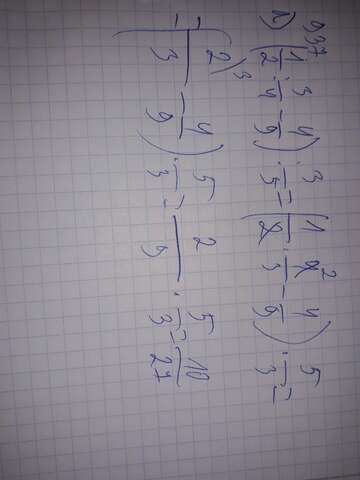 937
1) (1/2 : 3/4 - 4/9) : 3/5 = (1/2 · 4²/3 - 4/9) · 5/3 =
= (2 ³⁾/3 - 4/9) · 5/3 = 2/9 · 5/3 = 10/27